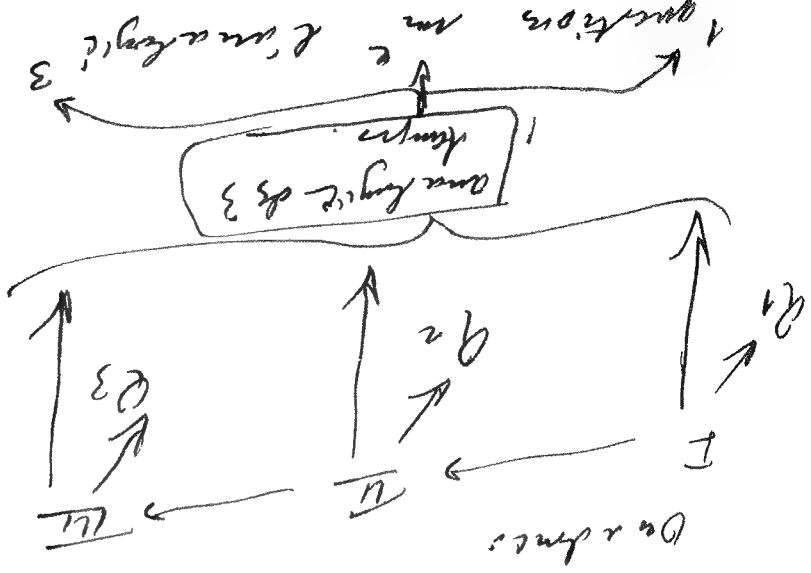 On a donc:
I → II → III
Q1 Q2 Q3
analogie ds 3
temps
1 question l'analogie 3